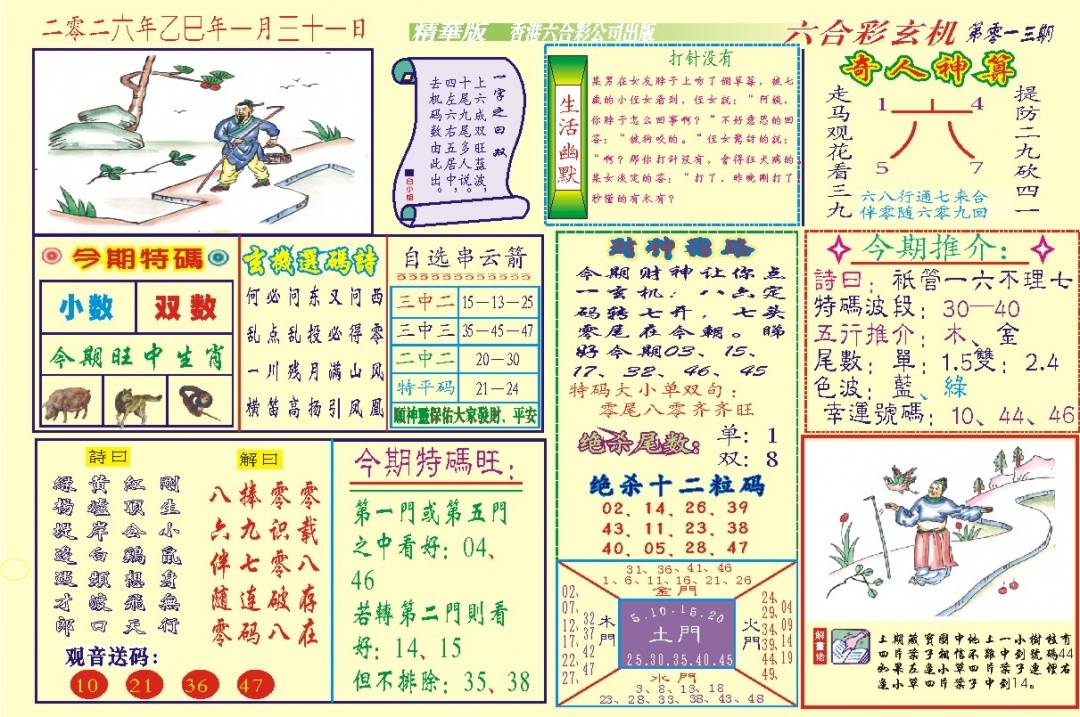 二零二六年乙巳年一月三十一日
精華版 香港六合彩公司出版
六合彩玄机 第零一三期
一字之曰:双
上六成双旺蓝波
十尾九尾多人说,
四左六右五居中。
去机码数由此出
白小姐
生活幽默
打针没有
某男在女友脖子上吻了個草莓,被七
歲的小侄女看到,侄女説:“阿姨,
你脖子怎么回事啊?”不好意思的回
答:“被狗咬的。”侄女驚訝的説:
“啊?那你打針没有,會得狂犬病的
某女淡定的答:“打了,昨晚剛打了
秒懂的有木有?
奇人神算
走马观花看三九
提防二九砍四一
1 4
六
5 7
六八行通七来合
伴零随六零九回
今期特碼
小数 双数
今期旺中生肖
玄機選碼詩
何必问东又问西
乱点乱投必得零
一川残月满山风
横笛高扬引凤凰
自选串云箭
三中二 15—13—25
三中三 35—45—47
二中二 20—30
特平码 21—24
順神靈保佑大家發財、平安
財神
今期财神让你点
一玄机:八六定
码转七开,七头
零尾在今朝。睇
好今期03、15、
17、32、46、45
特码大小单双句:
零尾八零齐齐旺
绝杀尾数: 单:1
双:8
绝杀十二粒码
02、14、26、39
43、11、23、38
40、05、28、47
今期推介:
詩曰:祇管一六不理七
特碼波段:30—40
五行推介:木、金
尾數:單:1.5雙:2.4
色波:藍、綠
幸運號碼:10、44、46
詩曰
剛生小鼠身無行
红顶公鷄想飛天
黄墟岸白頻波口
綠楊堤邊遇才郎
解曰
零零捧八
载识九六
八零七伴
存破连随
在八码零
观音送码:
10 21 36 47
今期特碼旺:
第一門或第五門
之中看好:04、
46
若轉第二門則看
好:14、15
但不排除:35、38
31、36、41、46
1、6、11、16、21、26
金門
02、07、12、17、22、27、
32 37 42 47
木門
5.10.15.20
土門
25.30.35.40.45
火門
24、29、34、39、44、49
04 09 14 19
水門
3、8、13、18
23、28、33、38、43、48
解畫佬
上期藏寶圖中地上一小樹枝有
四片葉子相信不難中到號碼44
如果左邊小草四片葉子連徑右
邊小草四片葉子中到14。